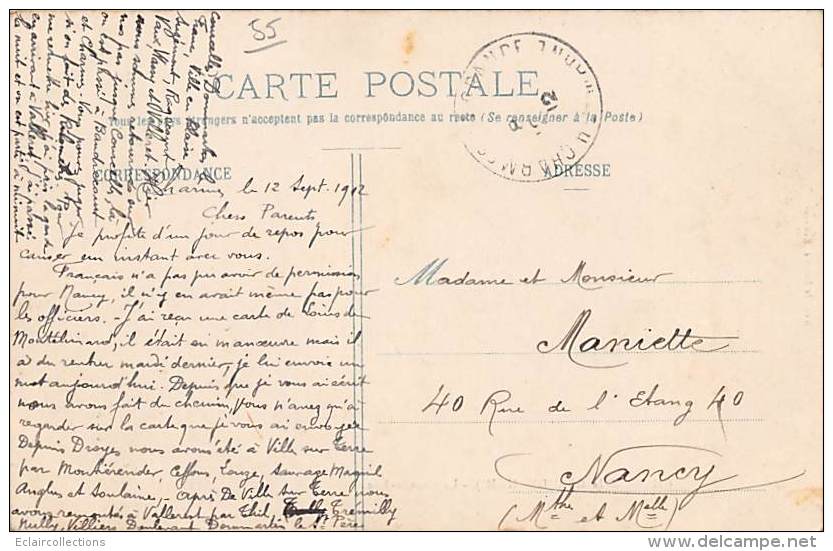 55
CARTE POSTALE
Tous les pays étrangers n'acceptent pas la correspondance au recto (Se renseigner à la Poste)
CORRESPONDANCE
ADRESSE
le 12 Sept. 1912
Chers Parents
Je profite d'un jour de repos pour
causer un instant avec vous.
Français n'a pas pu avoir de permission
pour Nancy, il n'y en avait même pas pour
les officiers. - J'ai reçu une carte de Louis de
il était en manœuvre mais il
a du rentrer mardi dernier, je lui envoie un
mot aujourd'hui. Depuis que je vous ai écrit
nous avons fait du chemin, vous n'avez qu'à
regarder sur la carte que je vous ai envoyée
Depuis Droyes nous avons été à Ville sur Terre
par Montiérender, Ceffons, Sauvage Magnil
Anglus et Soulaine, - après De Ville sur Terre nous
avons remonté à Valleret par Thil, Tremilly
Nully, Villiers, Doulevant Dommartin le St Père
Courcelles, Dommartin le
Franc, Ville en Blaise
Vaux, et Valleret. Hier
nous sommes retournés
pas jusque Courcelle, là
on est passé à Baudrecourt
et Charmes. Vous pouvez juger
si on fait de
en arrivant à Valleret j'ai passé
la nuit et on est parti à minuit
Madame et Monsieur
Maniette
40 Rue de l'Etang 40
Nancy
(Mthe et Mlle)
eclaircollections
delcampe.net